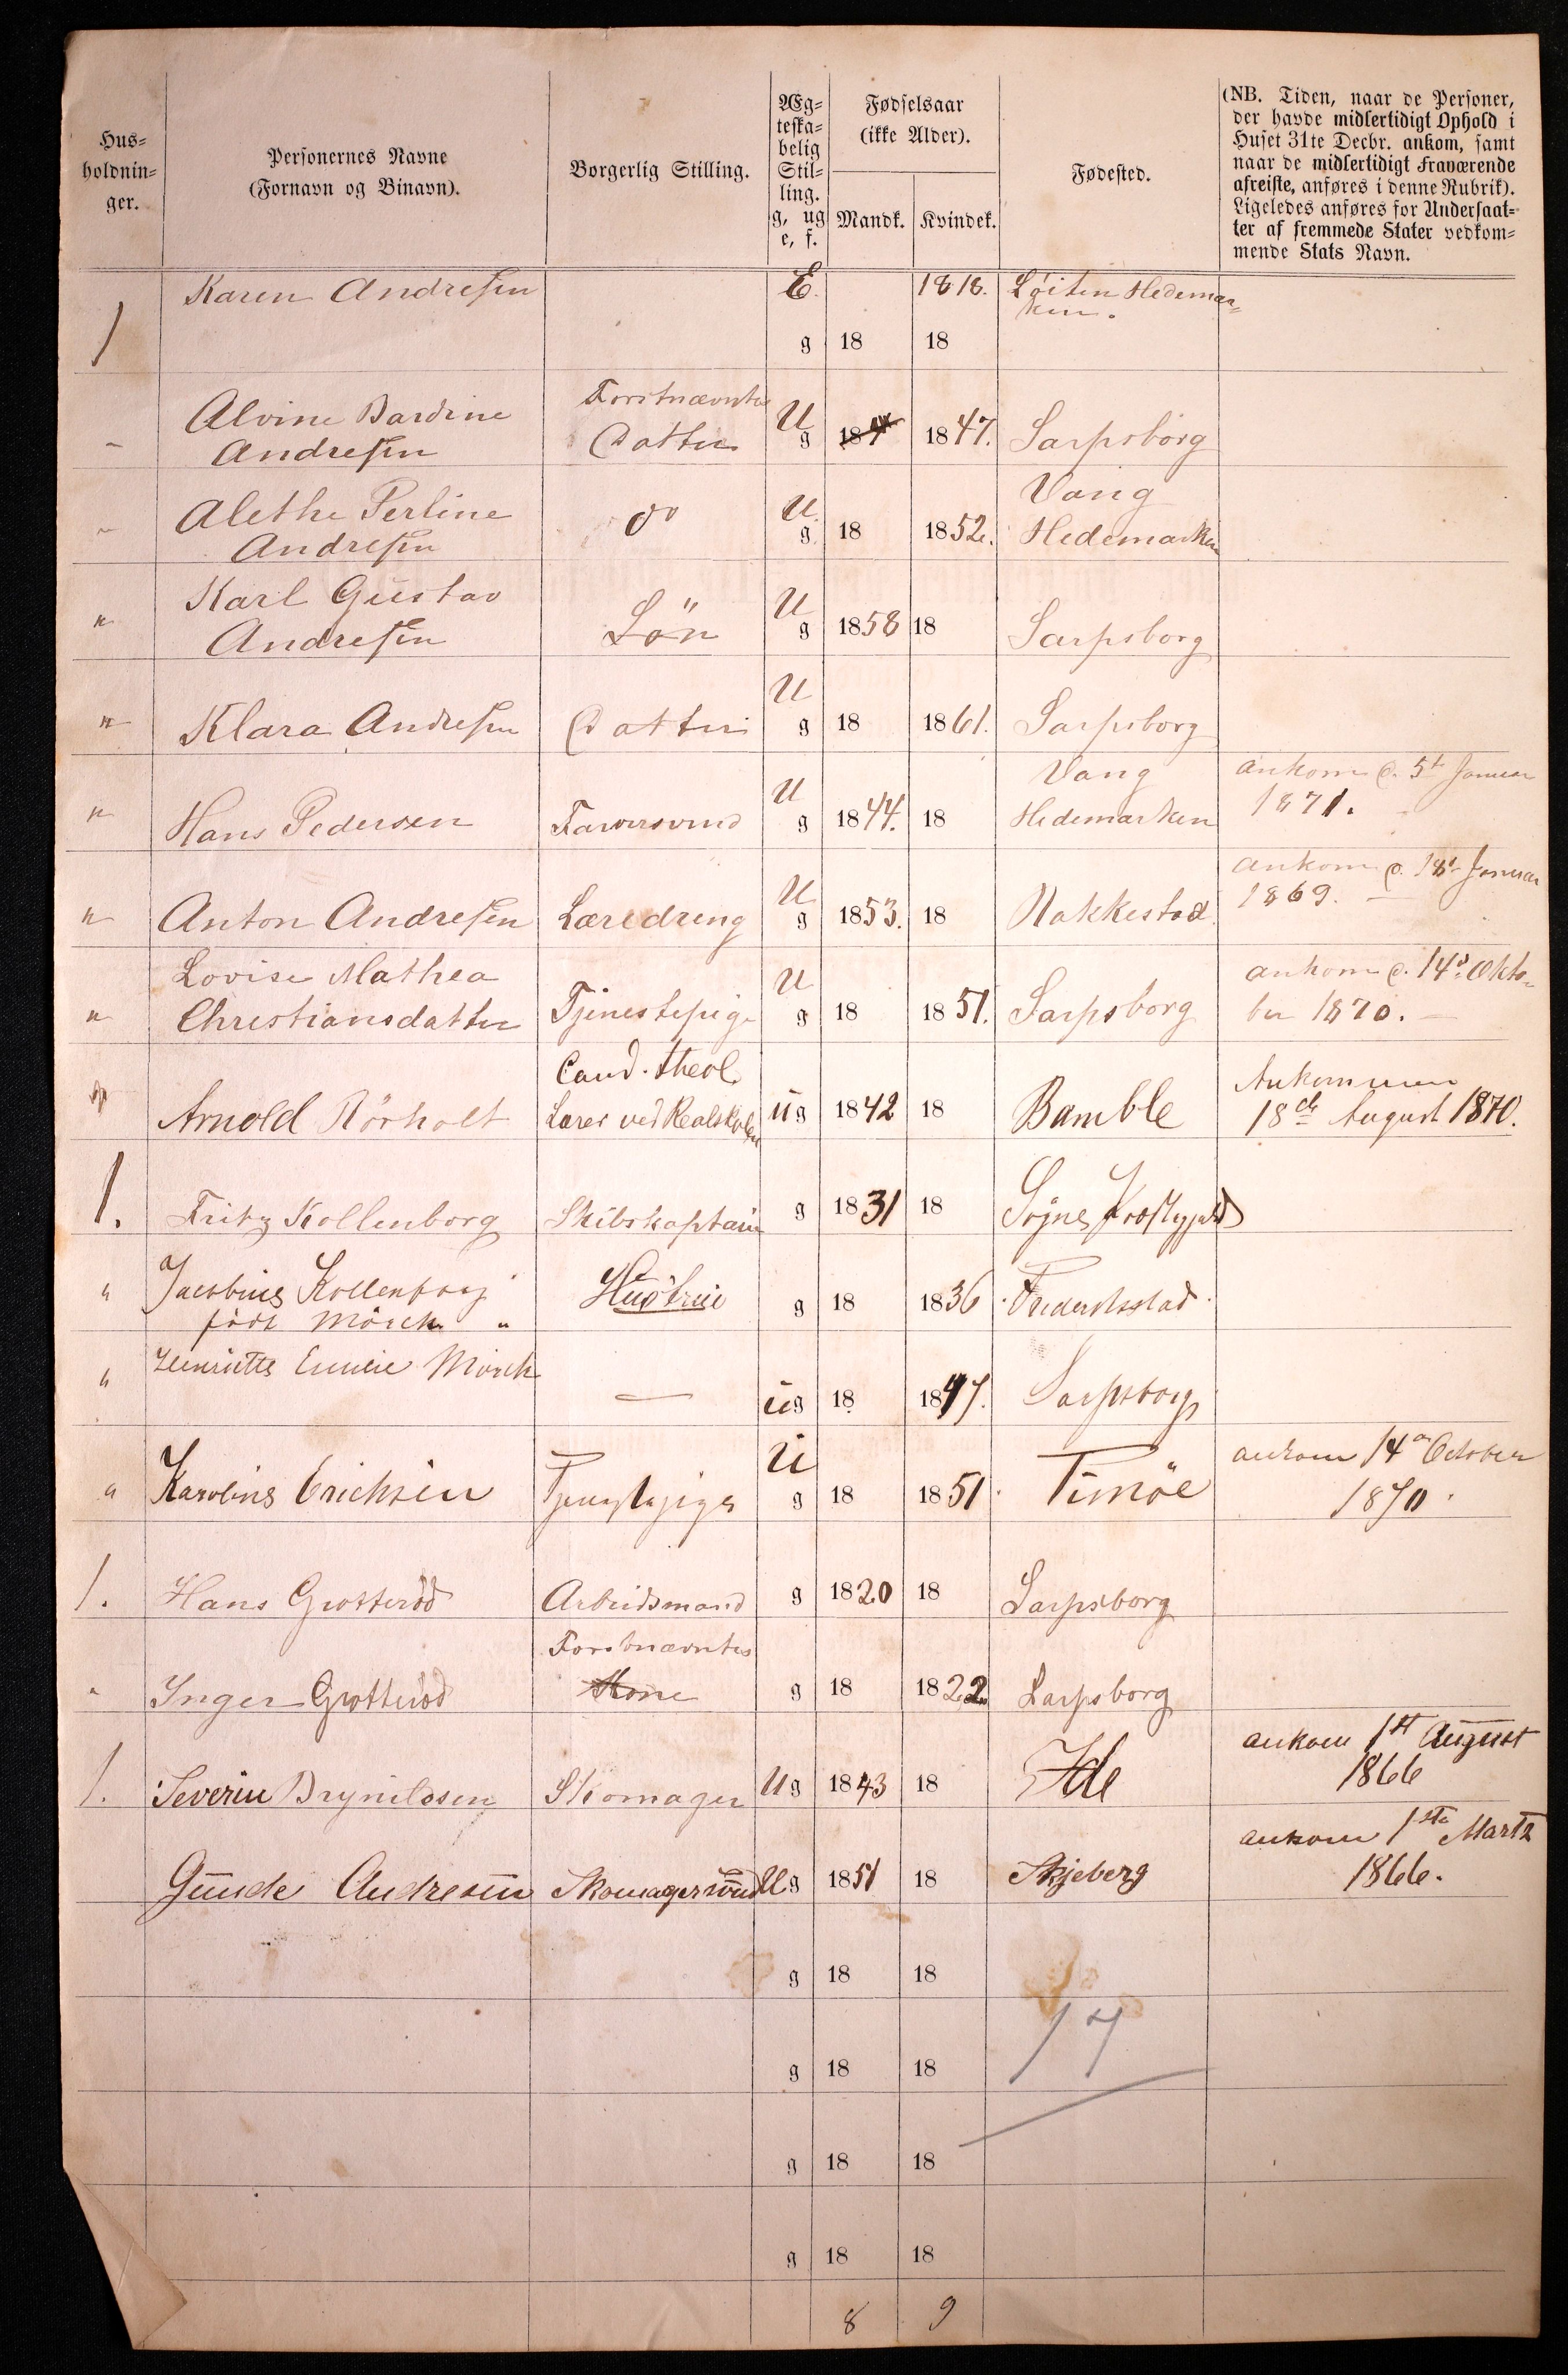 Hus-
holdnin-
ger.
Personernes Navne
(Fornavn og Binavn).
Borgerlig Stilling.
Æg-
teska-
belig
Stil-
ling.
g, ug
e, f.
Fødselsaar
(ikke Alder).
Mandk. Kvindek.
Fødested.
(NB. Tiden, naar de Personer,
der havde midlertidigt Ophold i
Huset 31te Decbr. ankom, samt
naar de midlertidigt Fraværende
afreiste, anføres i denne Rubrik).
Ligeledes anføres for Undersaat-
ter af fremmede Stater vedkom-
mende Stats Navn.
Karen Andresen E. 1818. Löiten Hedemar-
ken.
1 g 18 18
Alvine Bardine Forstnævntes U
Andresen Datter g 184 1847. Sarpsborg
Alethe Perline do U. Vang
Andresen g 18 1852. Hedemarken
Karl Gustav U
" Andresen Sön g 1858 18 Sarpsborg
U
" Klara Andresen Datter g 18 1861. Sarpsborg
U Vang ankom d. 5t Januar
" Hans Pedersen Farversvend g 1844. 18 Hedemarken 1871.
U ankom d. 18t Januar
" Anton Andresen Læredreng g 1853. 18 Rakkestad 1869.
Lovise Mathea U ankom d. 14d Okto-
" Christiansdatter Tjenestepige g 18 1851. Sarpsborg ber 1870.
Cand. theol. Ankommen
Arnold Rörholt Lærer ved Realskolen ug 1842 18 Bamble 18de August 1870.
1. Fritz Kollenborg Skibskaptain g 1831 18 Sognes Præstegjeld
" Jacobine Kollenborg Hustrue g 18 1836 Frederikstad
födt Mörch "
" Henriette Emilie Mörch — ug 18 1847. Sarpsborg
U ankom 14de October
" Karoline Erichsen Tjenestepige g 18 1851 Timöe 1870.
1. Hans Grotteröd Arbeidsmand g 1820 18 Sarpsborg
Forstnævntes
" Inger Grotteröd Kone g 18 1822 Sarpsborg
ankom 1st August
1. Severin Brynildsen Skomager Ug 1843 18 Ide 1866
ankom 1ste Marts
Gunde Andresen Skomagersvend Ug 1851 18 Skjeberg 1866.
g 18 18
g 18 18 17
g 18 18
g 18 18
8 9